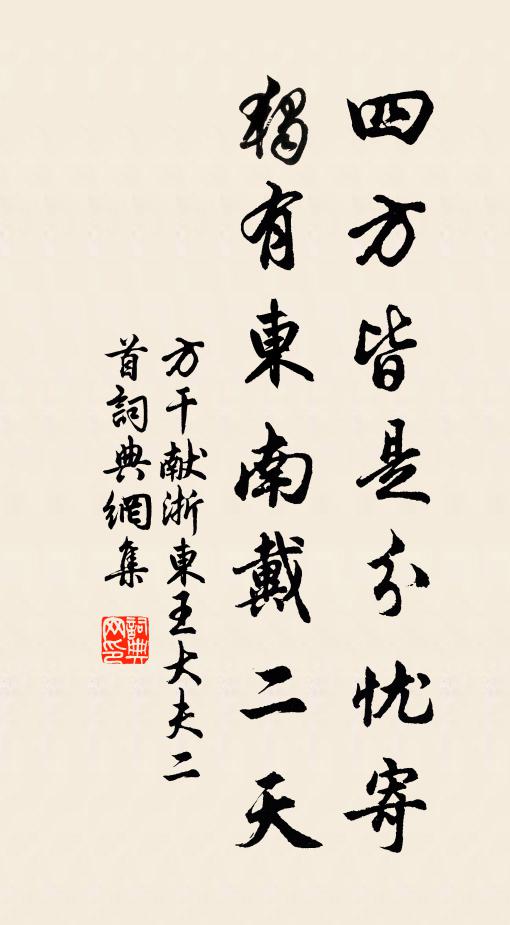 四方皆是分忧寄
獨有東南戴二天
方干献浙東王大夫二
首詞典網集
詞典网印